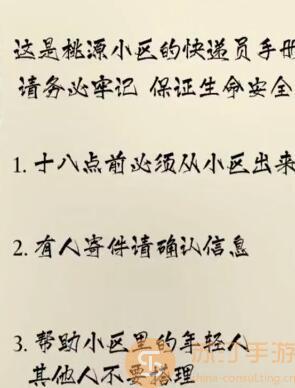 这是桃源小区的快递员手册
请务必牢记 保证生命安全
1. 十八点前必须从小区出来
2. 有人寄件请确认信息
3. 帮助小区里的年轻人
其他人不要搭理
china-consulting.cn